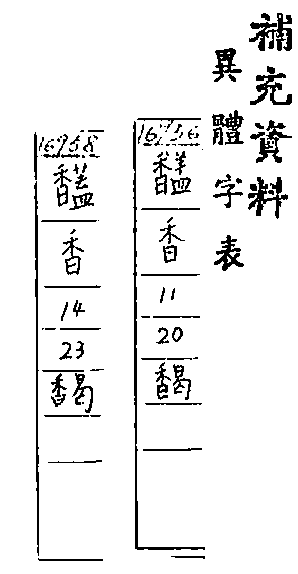 補充資料
異體字表
16756
香
11
20
馤
16758
香
14
23
馤